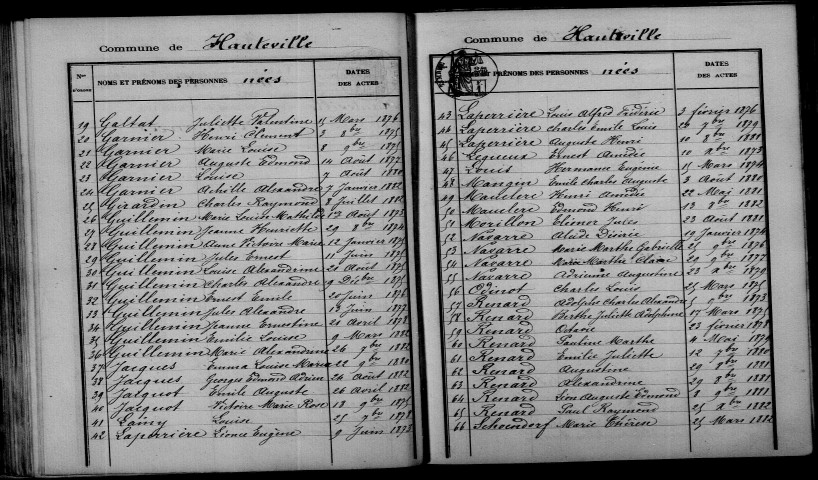 Commune de Hauteville
Nos D'ORDRE NOMS ET PRÉNOMS DES PERSONNES nées DATES DES ACTES
19 Galtat Juliette Valentine 15 Mars 1876
20 Garnier Henri Clément 3 8bre 1875
21 Garnier Marie Louise 8 9bre 1875
22 Garnier Auguste Edmond 14 Août 1877
23 Garnier Louise 7 Août 1880
24 Garnier Achille Alexandre 7 Janvier 1882
25 Girardin Charles Raymond 8 Juillet 1882
26 Guillemin Marie Louise Mathilde 17 Août 1873
27 Guillemin Jeanne Henriette 29 8bre 1874
28 Guillemin Anne Victoire Marie 12 Janvier 1875
29 Guillemin Jules Ernest 11 Juin 1875
30 Guillemin Louise Alexandrine 21 Août 1875
31 Guillemin Charles Alexandre 9 Décbre 1875
32 Guillemin Ernest Emile 20 Juin 1876
33 Guillemin Jules Alexandre 17 Juin 1877
34 Guillemin Jeanne Ernestine 21 Avril 1878
35 Guillemin Emilie Louise 9 Mars 1882
36 Guillemin Marie Alexandrine 26 9bre 1882
37 Jacques Emma Louise Maria 22 9bre 1880
38 Jacques Georges Edmond Adrien 24 Août 1882
39 Jacquot Emile Auguste 26 Avril 1882
40 Jacquot Victoire Marie Rose 18 9bre 1875
41 Lamy Louise 25 9bre 1878
42 Laperrière Léonce Eugène 9 Juin 1873
Commune de Hauteville
PRÉNOMS DES PERSONNES nées DATES DES ACTES
43 Laperrière Louis Alfred Frédéric 3 février 1876
44 Laperrière Charles Emile Louis 14 9bre 1879
45 Laperrière Auguste Henri 10 8bre 1881
46 Lequeux Ernest Amédée 10 Xbre 1873
47 Louis Hermance Eugénie 15 Mars 1874
48 Mangin Emile Charles Auguste 3 Août 1880
49 Mauclere Henri Amédée 22 Mai 1881
50 Mauclere Edmond Henri 13 8bre 1882
51 Morillon Elinor Jules 23 Août 1881
52 Navarre Désirée 19 Janvier 1874
53 Navarre Marie Marthe Gabrielle 25 9bre 1876
54 Navarre Marie Marthe Claire 29 9bre 1877
55 Navarre Adrienne Augustine 23 Xbre 1879
56 Odinot Charles Louis 25 Mars 1875
57 Renard Adolphe Charles Alexandre 5 9bre 1873
58 Renard Berthe Juliette Adolphine 17 Mars 1875
59 Renard Octavie 23 février 1878
60 Renard Pauline Marthe 4 Mai 1879
61 Renard Emilie Juliette 12 9bre 1880
62 Renard Augustine 29 8bre 1881
63 Renard Alexandrine 29 8bre 1881
64 Renard Léon Auguste Edmond 8 9bre 1881
65 Renard Paul Raymond 25 Xbre 1882
66 Schoendorf Marie Thérèse 25 Mars 1882